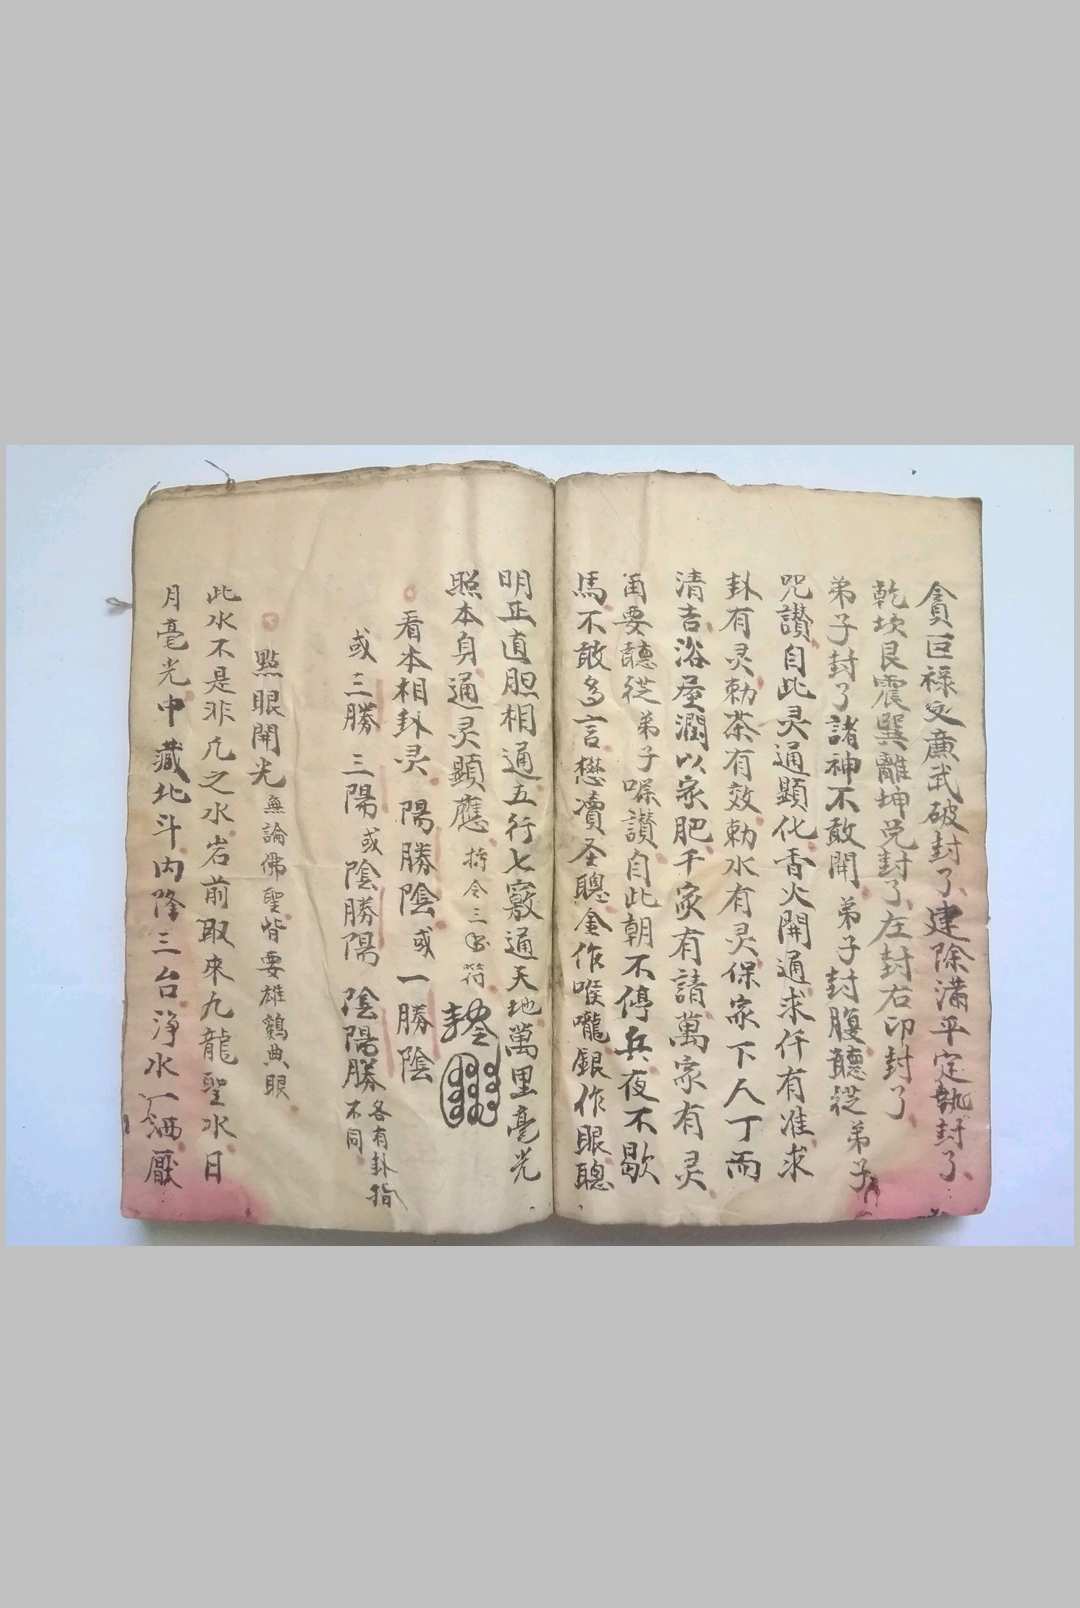 貪巨祿文廉武破封了建除滿平定執封了
乾坎艮震巽離坤兌封了左封右印封了
弟子封了諸神不敢開 弟子封腹聽從弟子
咒讚自此灵通顕化香火開通求仟有准求
卦有灵勅茶有效勅水有灵保家下人丁而
清吉浴屋潤以家肥千家有請萬家有灵
再要聽從弟子噿讚自此朝不停兵夜不歇
馬不敢多言懋凟圣聰金作喉嚨銀作眼聰
明正直胆相通五行七竅通天地萬里毫光
照本身通灵顯應 符
看本相卦灵 陽勝陰或一勝陰
或三勝三陽或陰勝陽 陰陽勝各有卦指
不同
點眼開光無論佛聖皆要雄鷄典眼
此水不是非凢之水岩前取來九龍聖水日
月毫光中藏北斗內隆三台淨水一洒厭